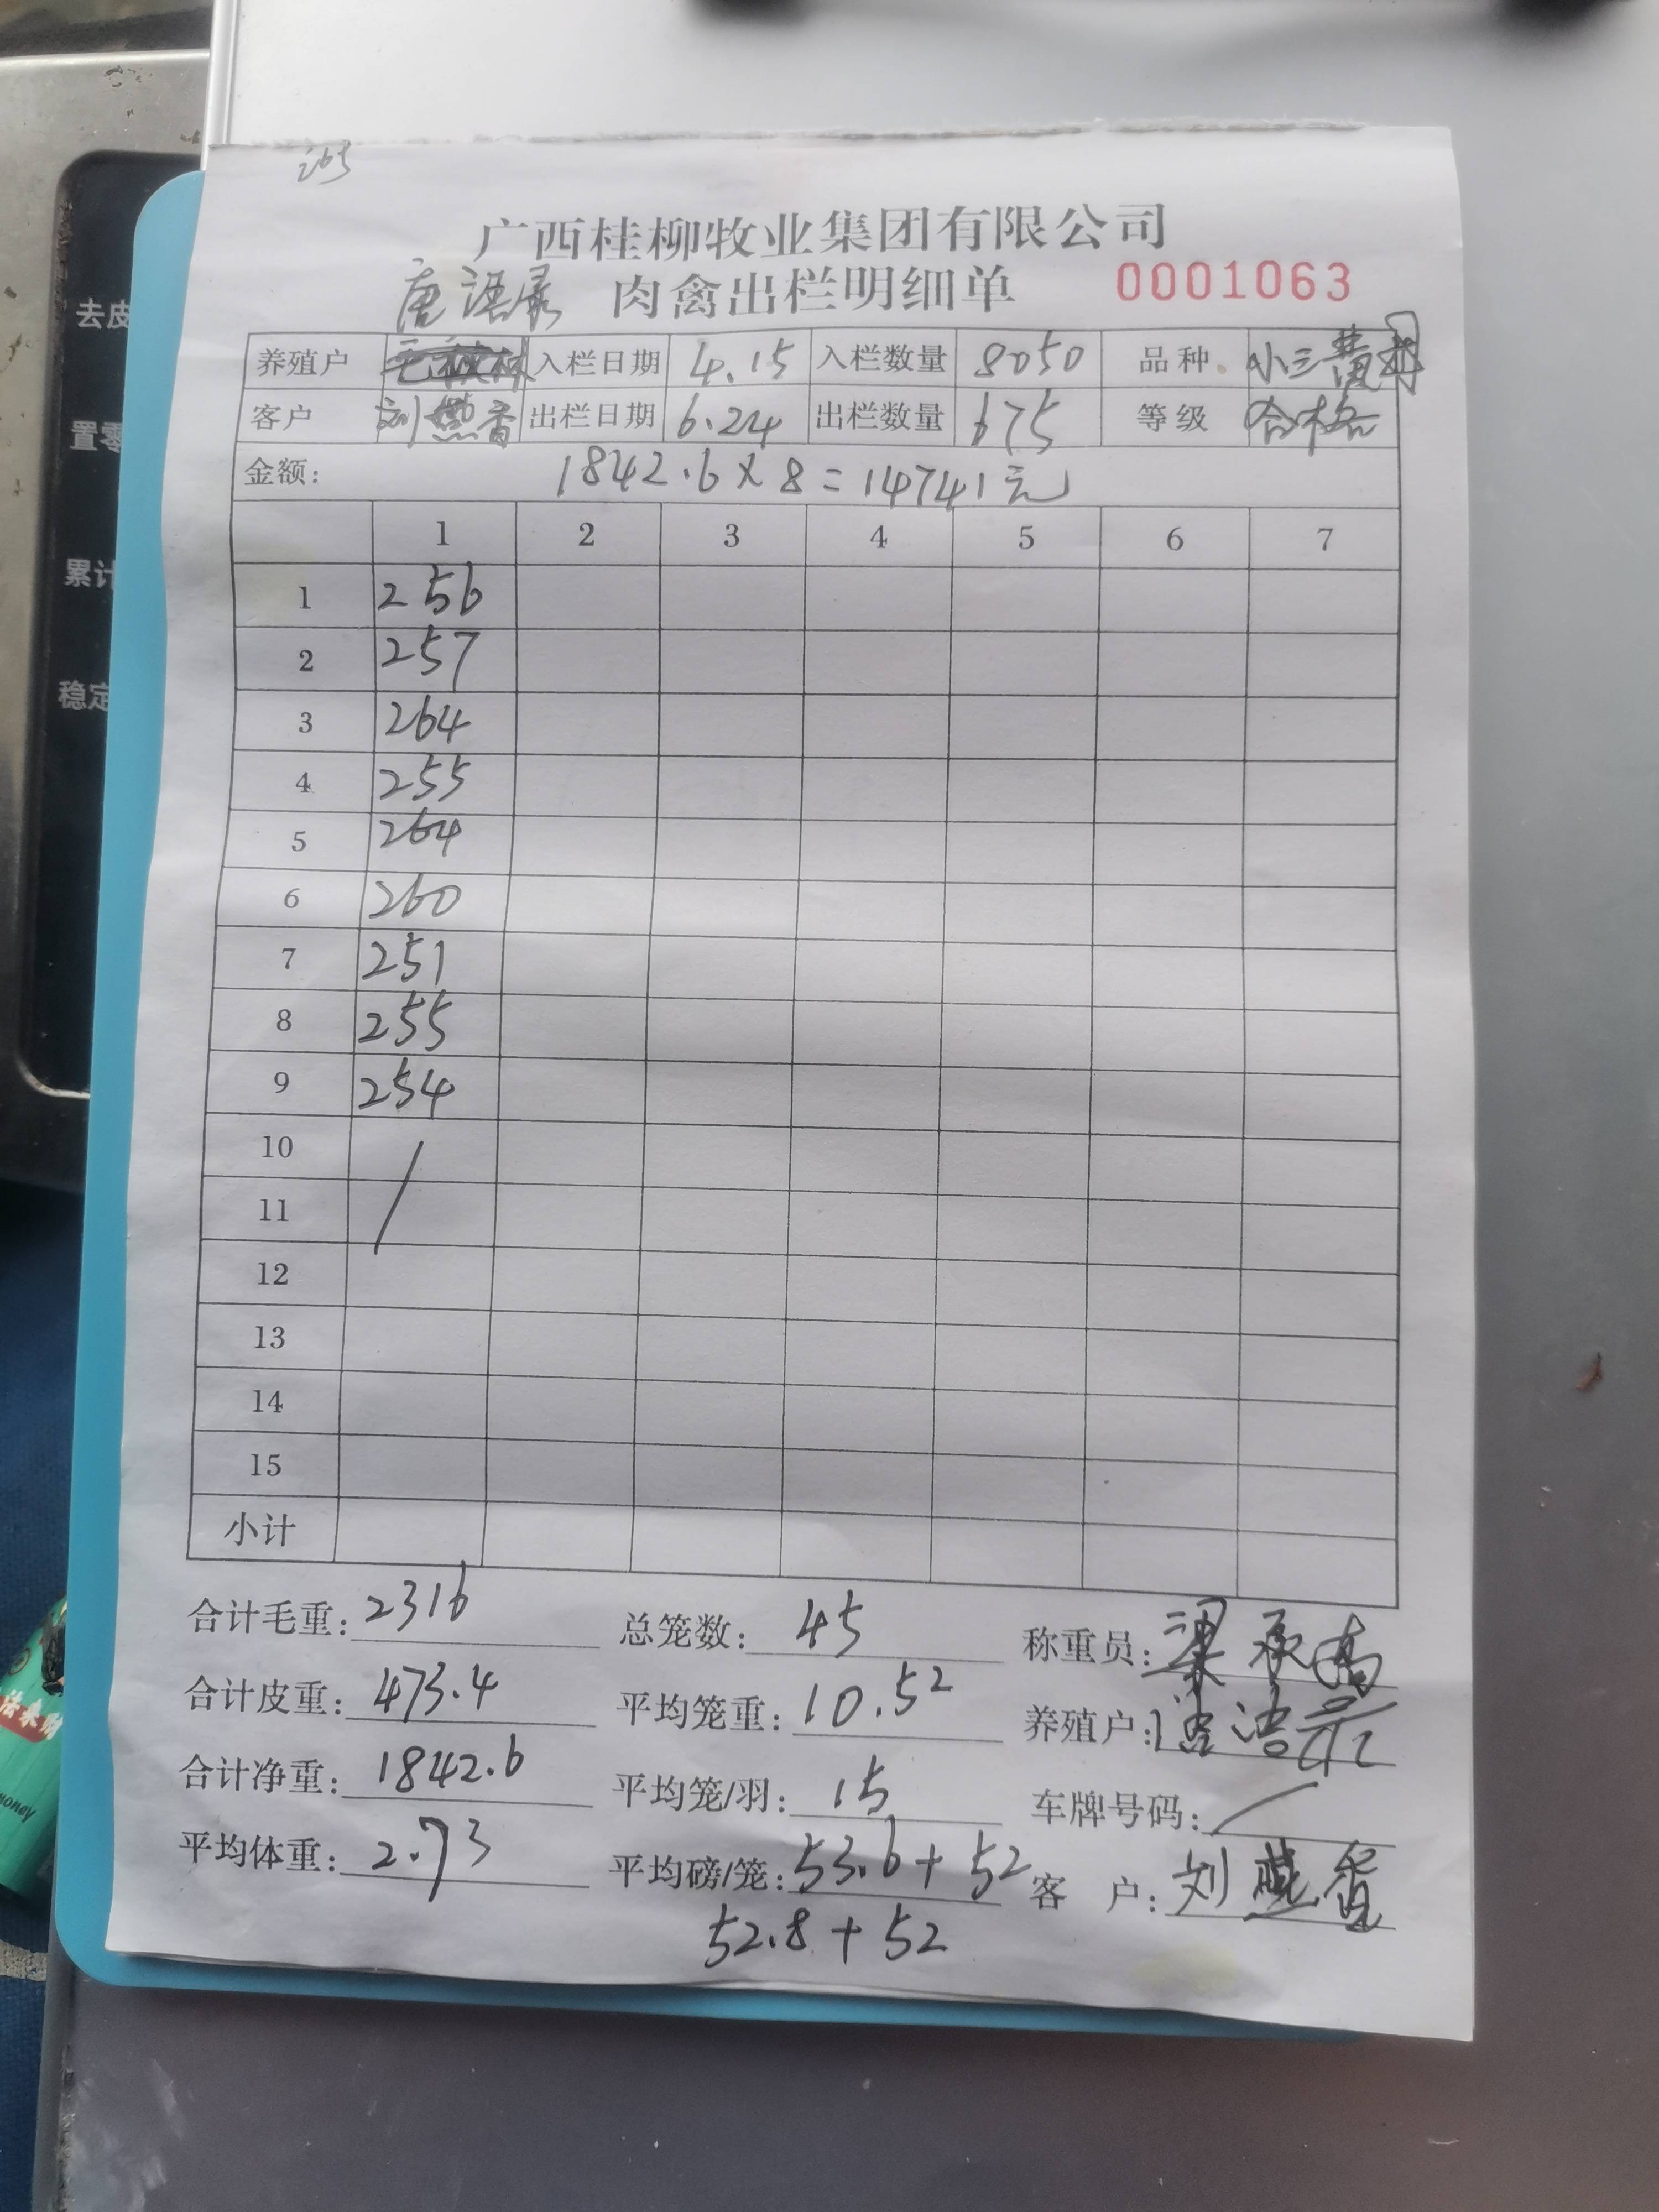 265
广西桂柳牧业集团有限公司
唐语录 肉禽出栏明细单 0001063
养殖户 入栏日期 4.15 入栏数量 8050 品种 小三黄
客户 刘燕香 出栏日期 6.24 出栏数量 675 等级 合格
金额: 1842.6×8=14741元
1 2 3 4 5 6 7
1 256
2 257
3 264
4 255
5 264
6 260
7 251
8 255
9 254
10 /
11
12
13
14
15
小计
合计毛重: 2316 总笼数: 45 称重员: 梁承
合计皮重: 473.4 平均笼重: 10.52 养殖户:
合计净重: 1842.6 平均笼/羽: 15 车牌号码: /
平均体重: 2.73 平均磅/笼: 53.6+52 客 户: 刘燕香
52.8+52
去皮
置零
累计
稳定
money